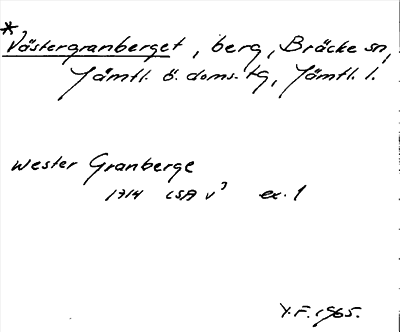 *
Västergranberget, berg, Bräcke sn,
Jämtl. ö. doms. tg, Jämtl. l.
Wester Granberge
1714 LSA v³ ex. 1
Y.F. 1965.